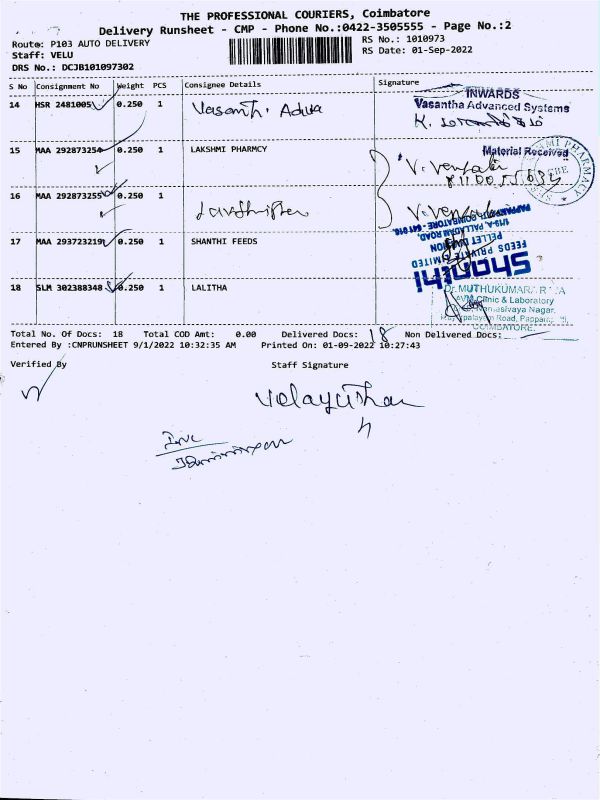 THE PROFESSIONAL COURIERS, Coimbatore
Delivery Runsheet - CMP - Phone No.:0422-3505555 - Page No.:2
Route: P103 AUTO DELIVERY RS No.: 1010973
Staff: VELU RS Date: 01-Sep-2022
DRS No.: DCJB101097302
S No Consignment No Weight PCS Consignee Details Signature
INWARDS
14 HSR 2481005 0.250 1 Vasantha Advanced Systems
Material Received
15 MAA 292873254 0.250 1 LAKSHMI PHARMCY
16 MAA 292873255 0.250 1
17 MAA 293723219 0.250 1 SHANTHI FEEDS
Shanthi
FEEDS PRIVATE LIMITED
PELLET DIVISION
1/19-A, PALLADAM ROAD,
18 SLM 302388348 0.250 1 LALITHA
AVM Clinic & Laboratory
COIMBATORE
Total No. Of Docs: 18 Total COD Amt: 0.00 Delivered Docs: 18 Non Delivered Docs:
Entered By :CNPRUNSHEET 9/1/2022 10:32:35 AM Printed On: 01-09-2022 10:27:43
Verified By Staff Signature